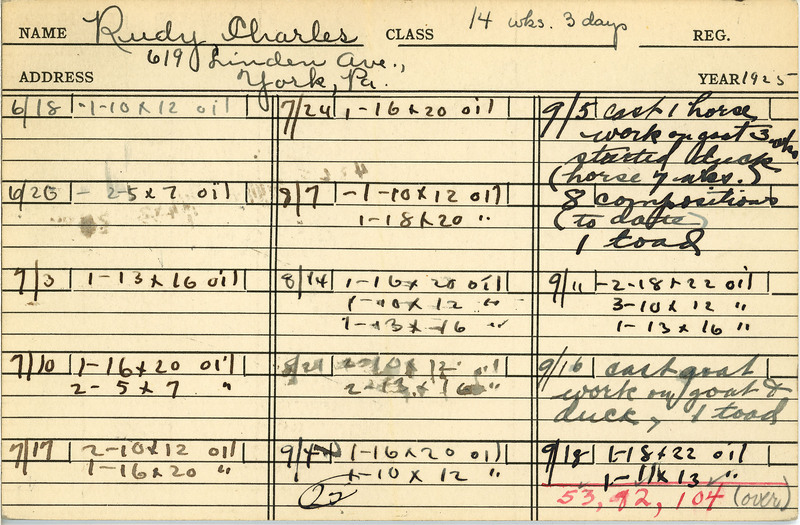 NAME Rudy Charles CLASS 14 wks. 3 days REG.
619 Linden Ave.,
ADDRESS York, Pa. YEAR 1925
6/18 -1-10 x 12 oil
6/26 - 2-5 x 7 oil
7/3 1-13 x 16 oil
7/10 1-16 x 20 oil
2-5 x 7 "
7/17 2-10 x 12 oil
1-16 x 20 "
7/24 1-16 x 20 oil
8/7 -1-10 x 12 oil
1-18 x 20 "
8/14 1-16 x 20 oil
1-10 x 12 "
1-13 x 16 "
8/21 2-10 x 12 oil
2-13 x 16 "
9/4 1-16 x 20 oil
1-10 x 12 "
22
9/5 cast 1 horse
work on goat 3 wks
started duck
(horse 7 wks.)
8 compositions
(to date)
1 toad
9/11 -2-18 x 22 oil
3-10 x 12 "
1-13 x 16 "
9/16 cast goat
work on goat &
duck, 1 toad
9/18 1-18 x 22 oil
1-11 x 13 "
53, 82, 104 (over)